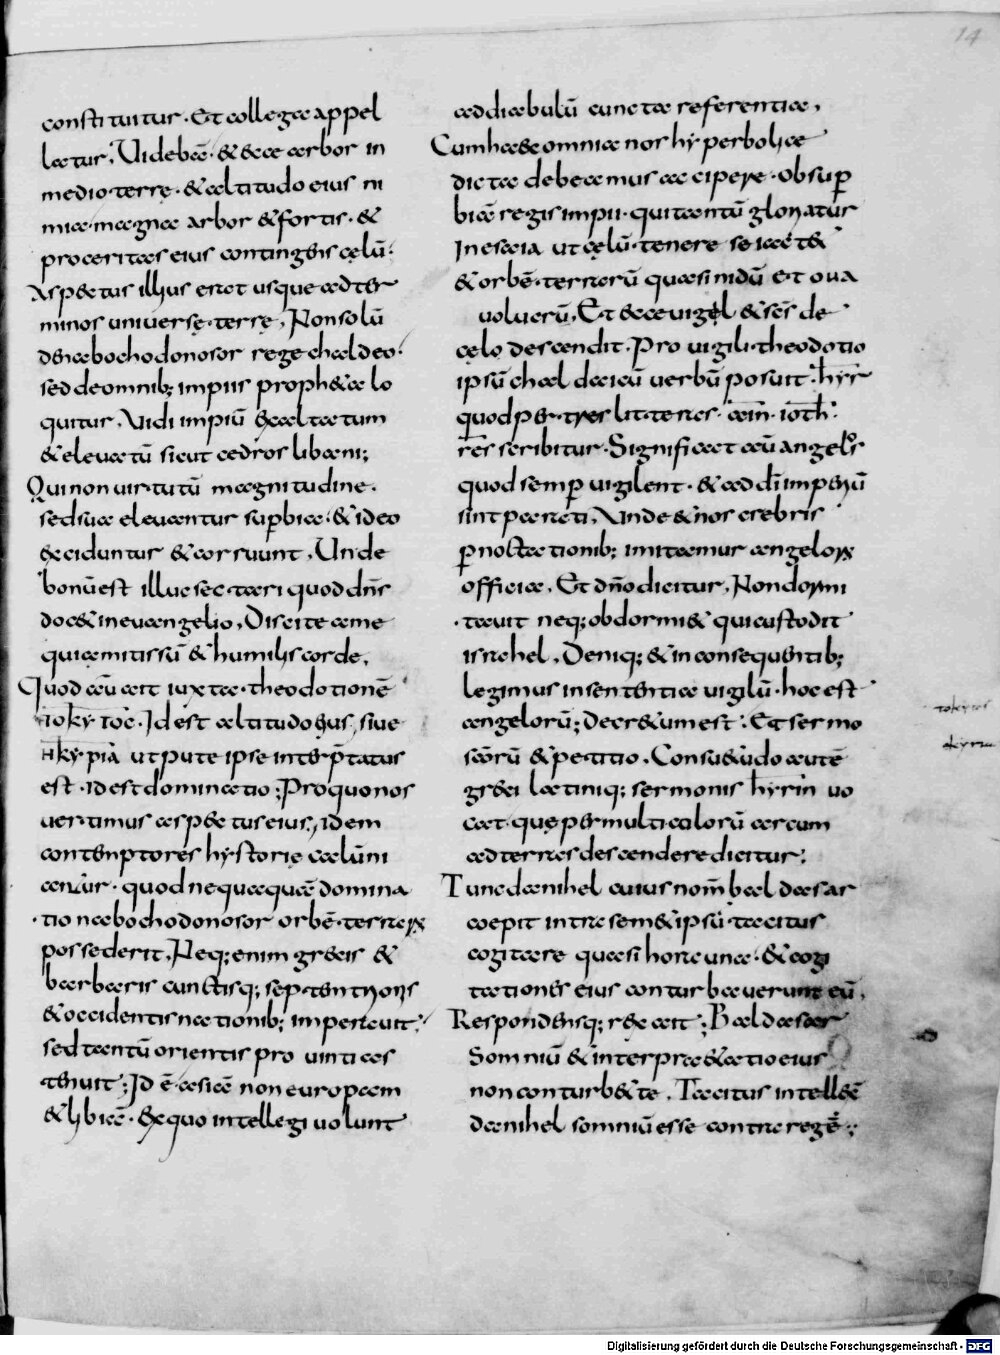 14
constituitur. Et collegæ appel
lætur, Videbā. & ecce arbor in
medio terrę. & altitudo eius ni
mia magna arbor & fortis. &
proceritas eius contingens cęlū.
Aspectus illius erat usque ad ter
minos universę terrę, Non solū
de nabochodonosor rege chaldeo.
sed de omnib; impiis propheta lo
quitur, Vidi impiū exaltatum
& elevatū sicut cedros libani;
Qui non virtutū magnitudine.
sed sua elevantur superbia. & ideo
exciduntur & corruunt, Unde
bonū est illuc sectari quod dn̄s
docet in evangelio, Discite a me
quia mitis sū & humilis corde,
Quod aū ait iuxta theodotionē
Id est altitudo eius, sive
ut pute ipse interp̄tatus
est. id est dominatio; Pro quo nos
vertimus aspectus eius, idem
contemptores hystorię calūni
antur. quod nequaquā domina
tio nabochodonosor orbē terrarū
possederit, Neq; enim grecis &
barbaris cunctisq; septentrionis
& occidentis nationib; imperavit.
sed tantū orientis provintias
tenuit; Id ē asiā non europam
& lybiā. Ex quo intellegi volunt
ad diabulū cuncta referentia,
Cum hec & omnia nos hyperbolicæ
dicta debeamus accipere. ob sup
biā regis impii. qui tantū gloriatur
In esaia ut cęlū tenere se iactet
& orbē terrarū quasi nidū et ova
volucrū, Et ecce vigel & sc̄s de
cęlo descendit. Pro vigili theodotio
ipsū chaldaicū verbū posuit. hyr
quod per tres litteras. ain. ioth.
res scribitur. Significat aū angelos
quod semp vigilent. & ad dī imperiū
sint parati, Unde & nos crebris
pnoctationib; imitamur angelorū
officia, Et dn̄o dicitur, Non dormi
tavit neq; obdormiet qui custodit
israhel, Deniq; & in consequentib;
legimus in sententia vigilū. hoc est
angelorū; decretum est. Et sermo
sc̄orū & petitio, Consuetudo autē
greci latiniq; sermonis hyrin vo
cat. quę per multicolorū arcum
ad terras descendere dicitur;
Tunc danihel cuius nom̄ baldasar
coepit intra semetipsū tacitus
cogitare quasi hora una. & cogi
tationes eius conturbaverunt eū,
Respondensq; rex ait; Baldasar
Somniū & interpretatio eius
non conturbet te, Tacitus intellexē
danihel somniū esse contra regē;